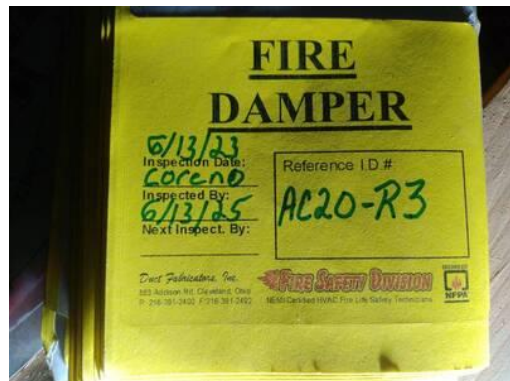 FIRE
DAMPER
6/13/23
Inspection Date:
Coreno
Inspected By:
6/13/25
Next Inspect. By:
Reference I.D.#
AC20-R3
Duct Fabricators, Inc.
Addison Rd. Cleveland, Ohio
FIRE SAFETY DIVISION
Certified HVAC Fire Life Safety Technicians
NFPA